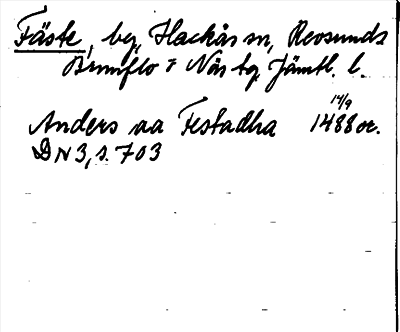 Fäste, by, Hackås sn, Revsunds
Brunflo o Näs tg, Jämtl. l.
14/9
Anders aa Festadha 1488 or.
DN 3, s. 703